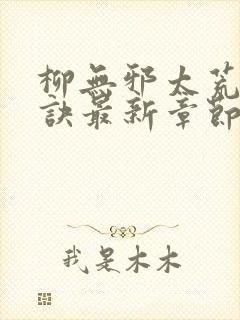 柳無邪太荒
訣最新章節
我是木木